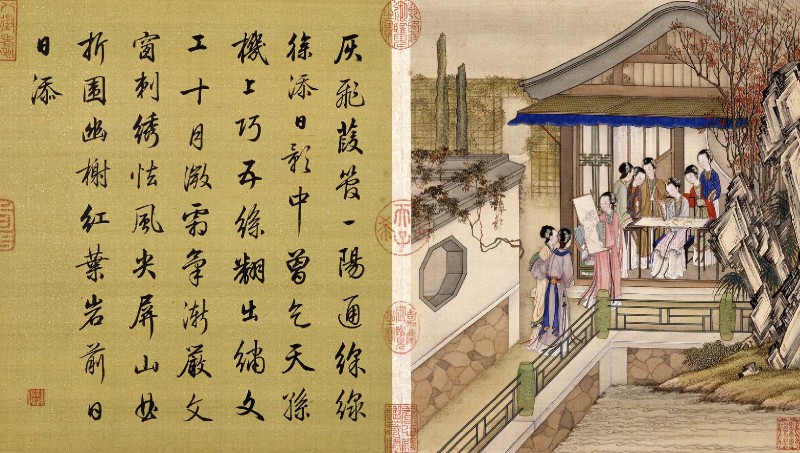 灰飛葭管一陽通綵線
徐添日影中曾乞天孫
機上巧五絲翻出繡文
工十月微霜氣漸嚴文
窗刺繡怯風尖屏山曲
折圍幽榭紅葉岩前日
日添